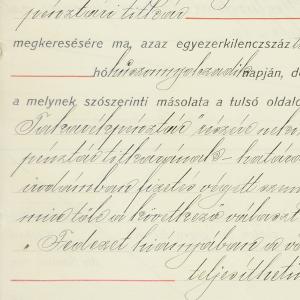 pénztári titkár
megkeresésére ma, azaz egyezerkilenczszáz
hó huszonnyolczadik napján, d
a melynek szószerinti másolata a tulsó oldal
Takarékpénztár" részére
pénztár titkárjának - határ
irodámban fizetés végett
mire tőle a következő választ
" Fedezet hiányában a vá
teljesíthető